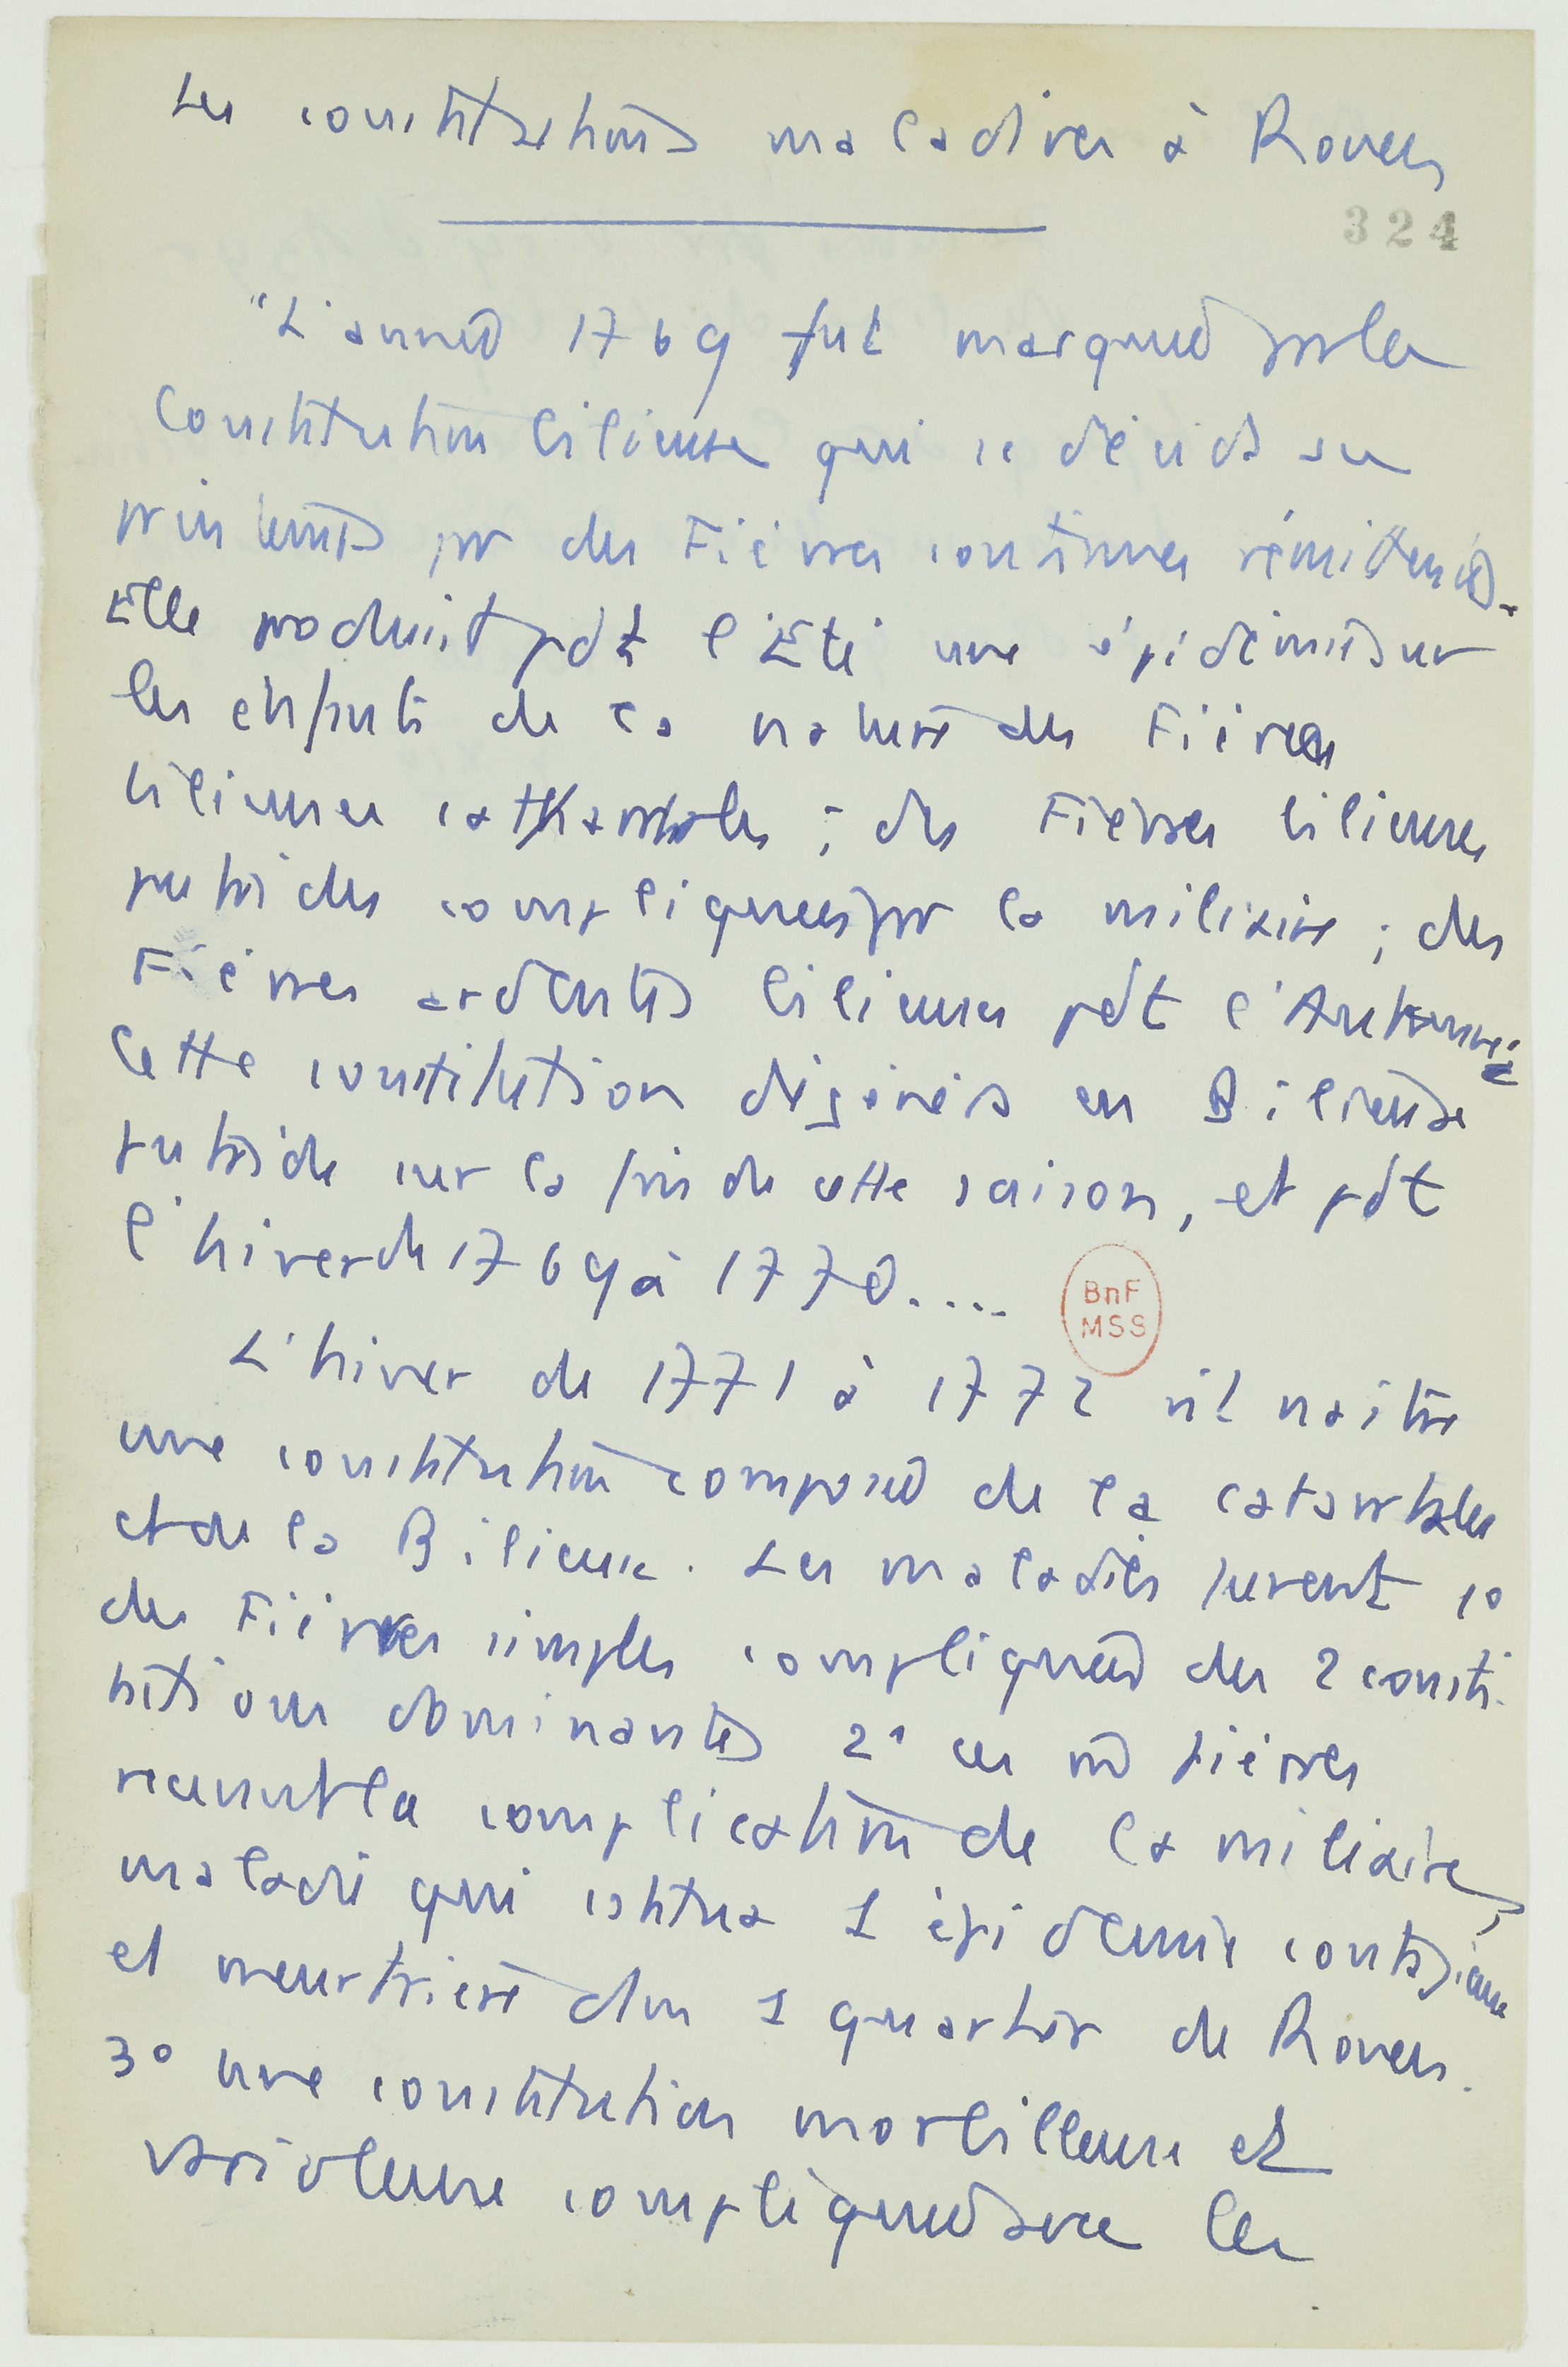 Les constitutions maladives à Rouen
324
"L'année 1769 fut marquée par la
Constitution bilieuse qui se décida au
printemps par des Fièvres continues rémittentes.
Elle produisit pdt l'Eté une épidémie sur
les enfants de la nature des Fièvres
bilieuses catharrales ; des Fièvres bilieuses
putrides compliquées par la miliaire ; des
Fièvres ardentes bilieuses pdt l'Automne ;
Cette constitution dégénéra en Bilieuse
putride sur la fin de cette saison, et pdt
l'hiver de 1769 à 1770....
BnF
MSS
L'hiver de 1771 à 1772 vit naître
une constitution composée de la catarrhale
et de la Bilieuse. Les maladies furent 1°
des Fièvres simples compliquées des 2 consti-
tutions dominantes 2° ces m̂ fièvres
reçurent la complication de la miliaire,
maladie qui constitua 1 épidémie contagieuse
et meurtrière dans 1 quartier de Rouen.
3° une constitution morbilleuse et
varioleuse compliquée avec les